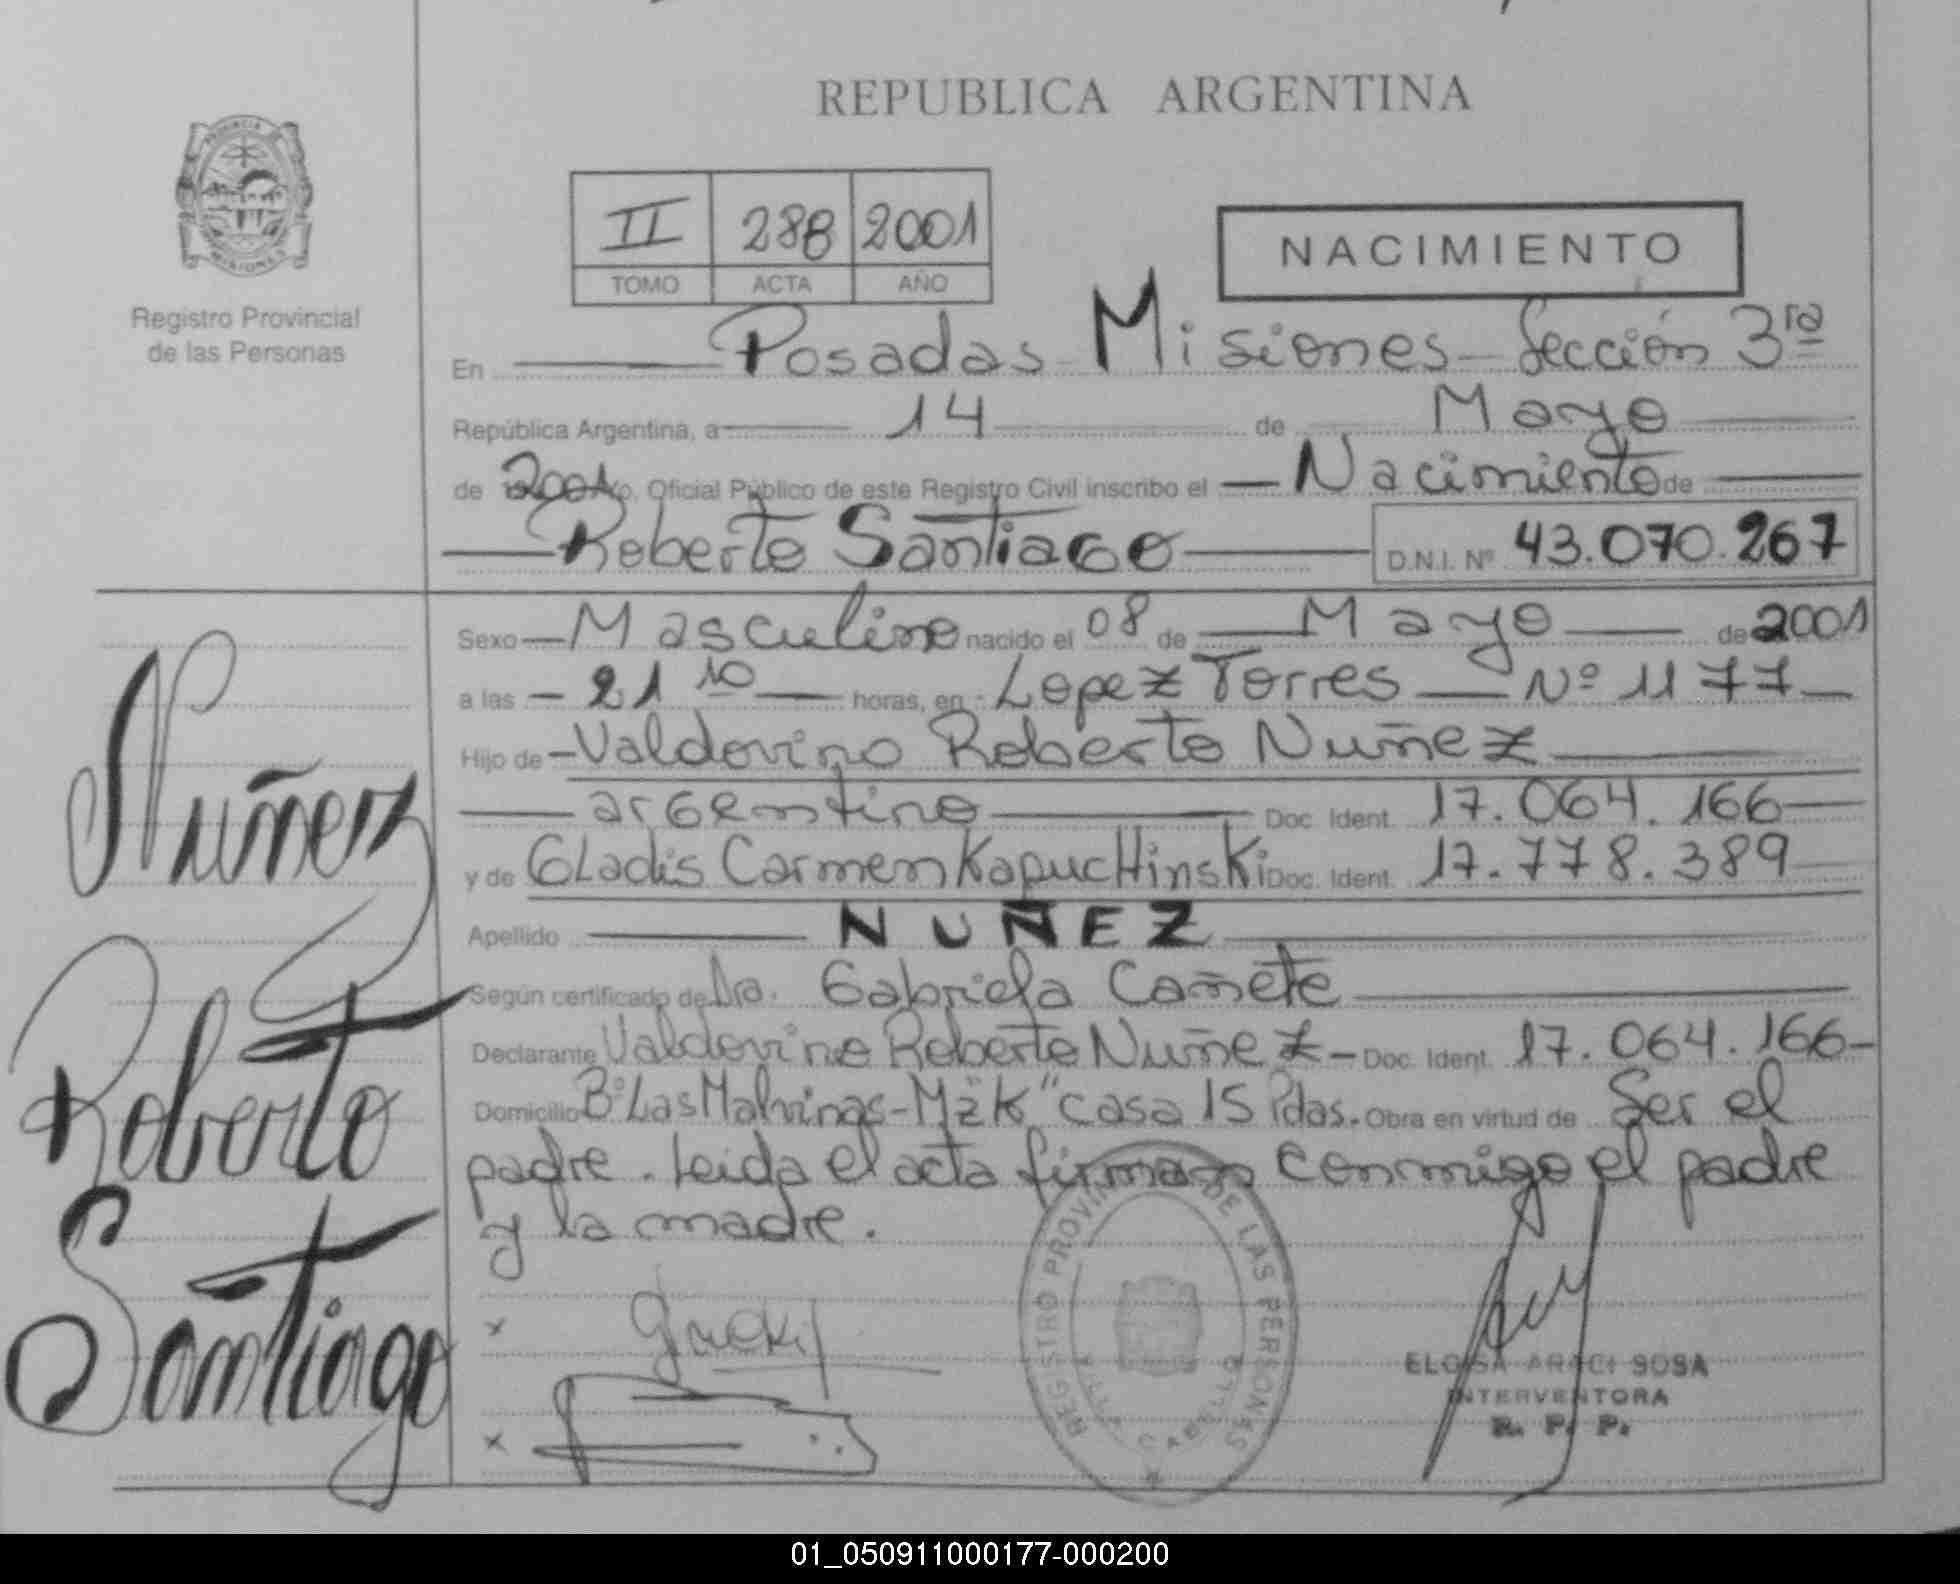 REPUBLICA ARGENTINA
PROVINCIA
MISIONES
Registro Provincial
de las Personas
II 288 2001
TOMO ACTA AÑO
NACIMIENTO
En Posadas Misiones Sección 3ra
República Argentina, a 14 de Mayo
de 2001 yo. Oficial Público de este Registro Civil inscribo el Nacimiento de
Roberto Santiago D.N.I. Nº 43.070.267
Sexo Masculino nacido el 08 de Mayo de 2001
a las 21 10 horas, en Lopez Torres Nº 1177
Hijo de Valdovino Roberto Nuñez
argentino Doc. Ident. 17.064.166
y de Gladis Carmen Kapuchinski Doc. Ident. 17.778.389
Apellido NUÑEZ
Según certificado de Dra. Gabriela Cañete
Declarante Valdovino Roberto Nuñez - Doc. Ident. 17.064.166-
Domicilio Bº Las Malvinas - Mz "K" casa 15 Pdas. Obra en virtud de Ser el
padre. Leida el acta firman conmigo el padre
y la madre.
Nuñez
Roberto
Santiago
x
x
REGISTRO PROVINCIAL DE LAS PERSONAS
VILLA CABELLO
ELOISA ARACI SOSA
INTERVENTORA
R. P. P.
01_050911000177-000200